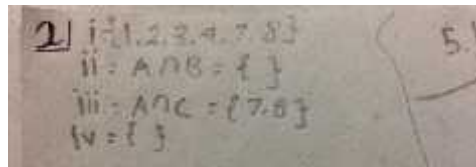 2 i = {1.2.3.4.7.8}
ii = A∩B = { }
iii = A∩C = {7.8}
iv = { }
5